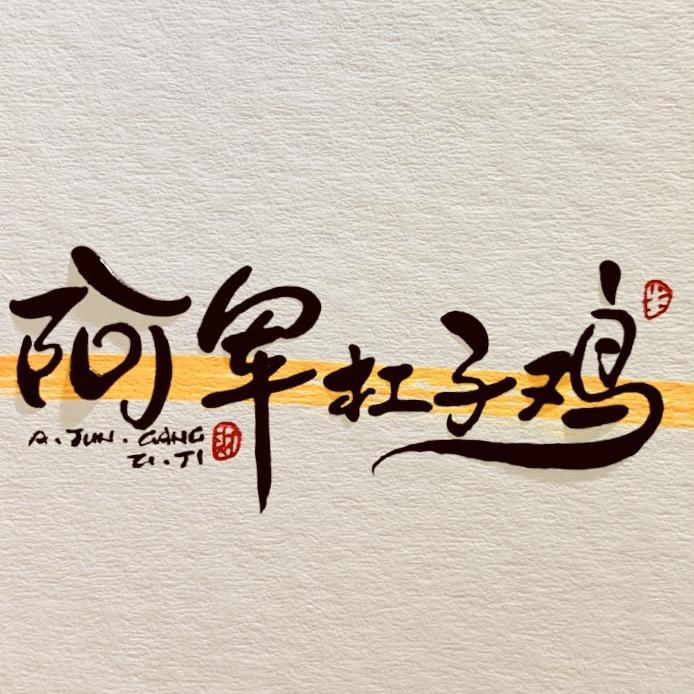 阿军杠子鸡
A.JUN.GANG
ZI.JI